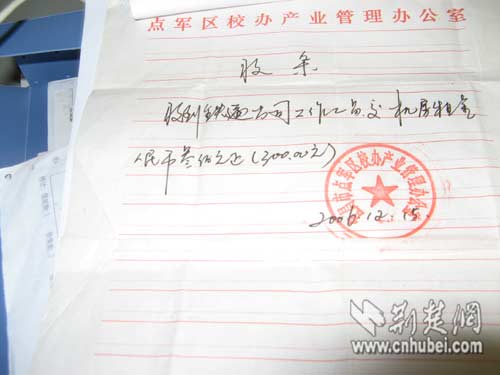 点军区校办产业管理办公室
收条
收到铁通公司工作人员交机房租金
人民币叁佰元正(300.00元)
市点军区校办产业管理办公室
2006.12.15.
荆楚网
www.cnhubei.com